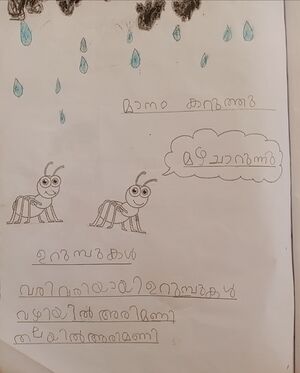 മാനം കറുത്തു
മഴ ചാറുന്നു
ഉറുമ്പുകൾ
വരിവരിയായി ഉറുമ്പുകൾ
വഴിയിൽ അരിമണി
തലയിൽ അരിമണി